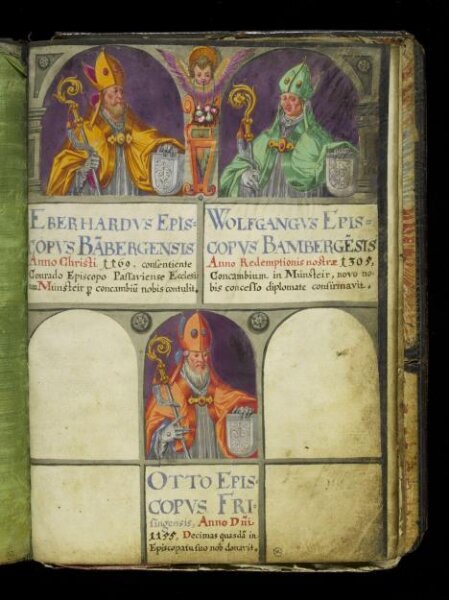 EBERHARDVS EPIS=
COPVS BÃBERGENSIS
Anno Christi 1160. consentiente
Conrado Episcopo Passaviense Ecclesi
am Münsteir p concambiũ nobis contulit.
WOLFGANGVS EPIS=
COPVS BAMBERGẼSIS
Anno Redemptionis nostræ 1305.
Concambium in Münsteir, novo no=
bis concesso diplomate confirmavit.
OTTO EPIS-
COPVS FRI-
singensis, Anno Dñi
1155. Decimas quasdã in
Episcopatu suo nob donavit.